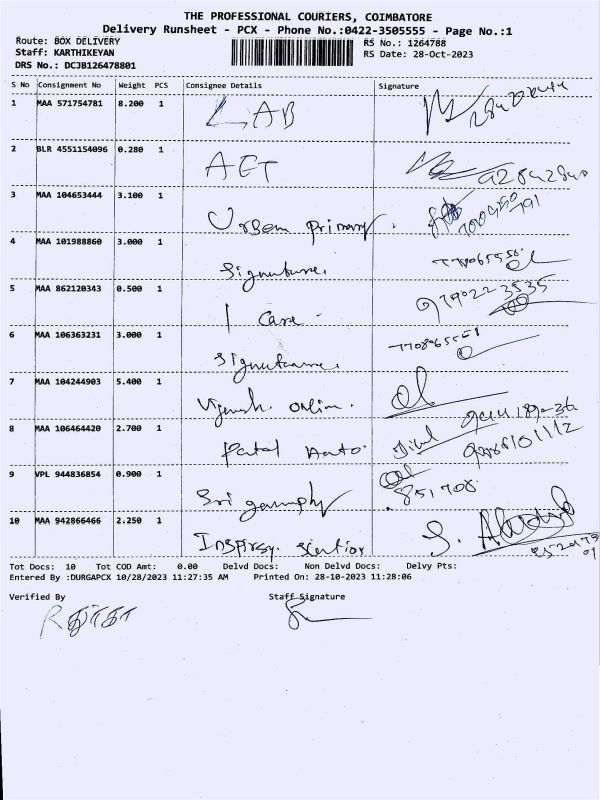 THE PROFESSIONAL COURIERS, COIMBATORE
Delivery Runsheet - PCX - Phone No.:0422-3505555 - Page No.:1
Route: BOX DELIVERY RS No.: 1264788
Staff: KARTHIKEYAN RS Date: 28-Oct-2023
DRS No.: DCJB126478801
S No Consignment No Weight PCS Consignee Details Signature
1 MAA 571754781 8.200 1 LAB
2 BLR 4551154096 0.280 1 AET
3 MAA 104653444 3.100 1 Urban primary.
4 MAA 101988860 3.000 1 Signature.
5 MAA 862120343 0.500 1 I Care.
6 MAA 106363231 3.000 1 Signature.
7 MAA 104244903 5.400 1 Online.
8 MAA 106464420 2.700 1 Patal Auto.
9 VPL 944836854 0.900 1 Sri 851708
10 MAA 942866466 2.250 1
Tot Docs: 10 Tot COD Amt: 0.00 Delvd Docs: Non Delvd Docs: Delvy Pts:
Entered By :DURGAPCX 10/28/2023 11:27:35 AM Printed On: 28-10-2023 11:28:06
Verified By Staff Signature